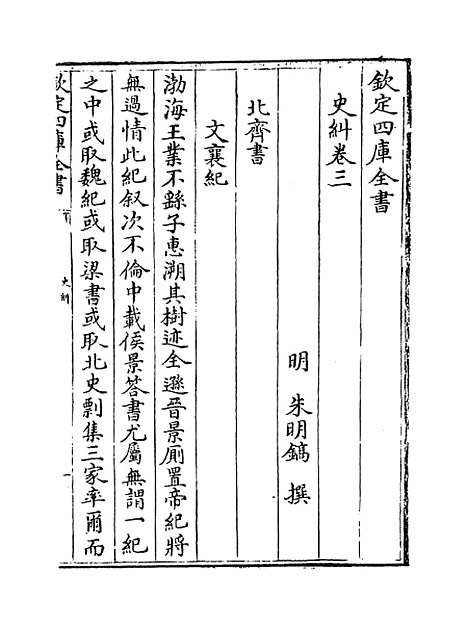 欽定四庫全書
史糾卷三
明 朱明鎬 撰
北齊書
文襄紀
渤海王業不繇子恵溯其樹迹全遜晉景厠置帝紀將
無過情此紀叙次不倫中載侯景答書尤屬無謂一紀
之中或取魏紀或取梁書或取北史剽集三家率爾而
欽定四庫全書
史糾
一